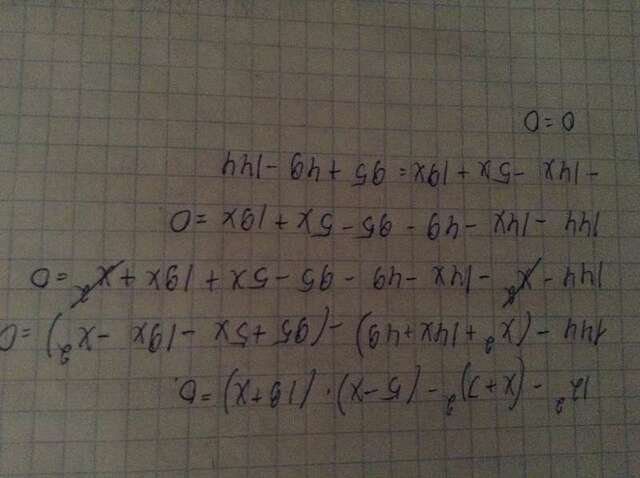 12² - (x+7)² - (5-x)·(19+x)=0.
144 - (x² + 14x+49) - (95+5x - 19x - x²) = 0
144 - x² - 14x - 49 - 95 - 5x + 19x + x² = 0
144 - 14x - 49 - 95 - 5x + 19x = 0
- 14x - 5x + 19x = 95 + 49 - 144
0 = 0